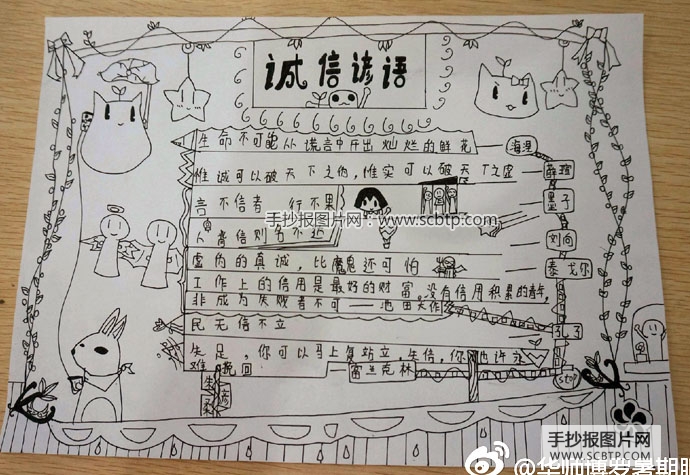 诚信谚语
生命不可能从谎言中开出灿烂的鲜花 — 海涅
惟诚可以破天下之伪，惟实可以破天下之虚 — 薛瑄
言不信者 行不果 — 墨子
手抄报图片网：www.scbtp.com
人背信则名不达 — 刘向
虚伪的真诚，比魔鬼还可怕 — 泰戈尔
工作上的信用是最好的财富。没有信用积累的青年，
非成为失败者不可 — 池田大作
民无信不立 孔子
失足，你可以马上复站立，失信，你也许永
难挽回 — 富兰克林
stop
手抄报图片网
www.scbtp.com